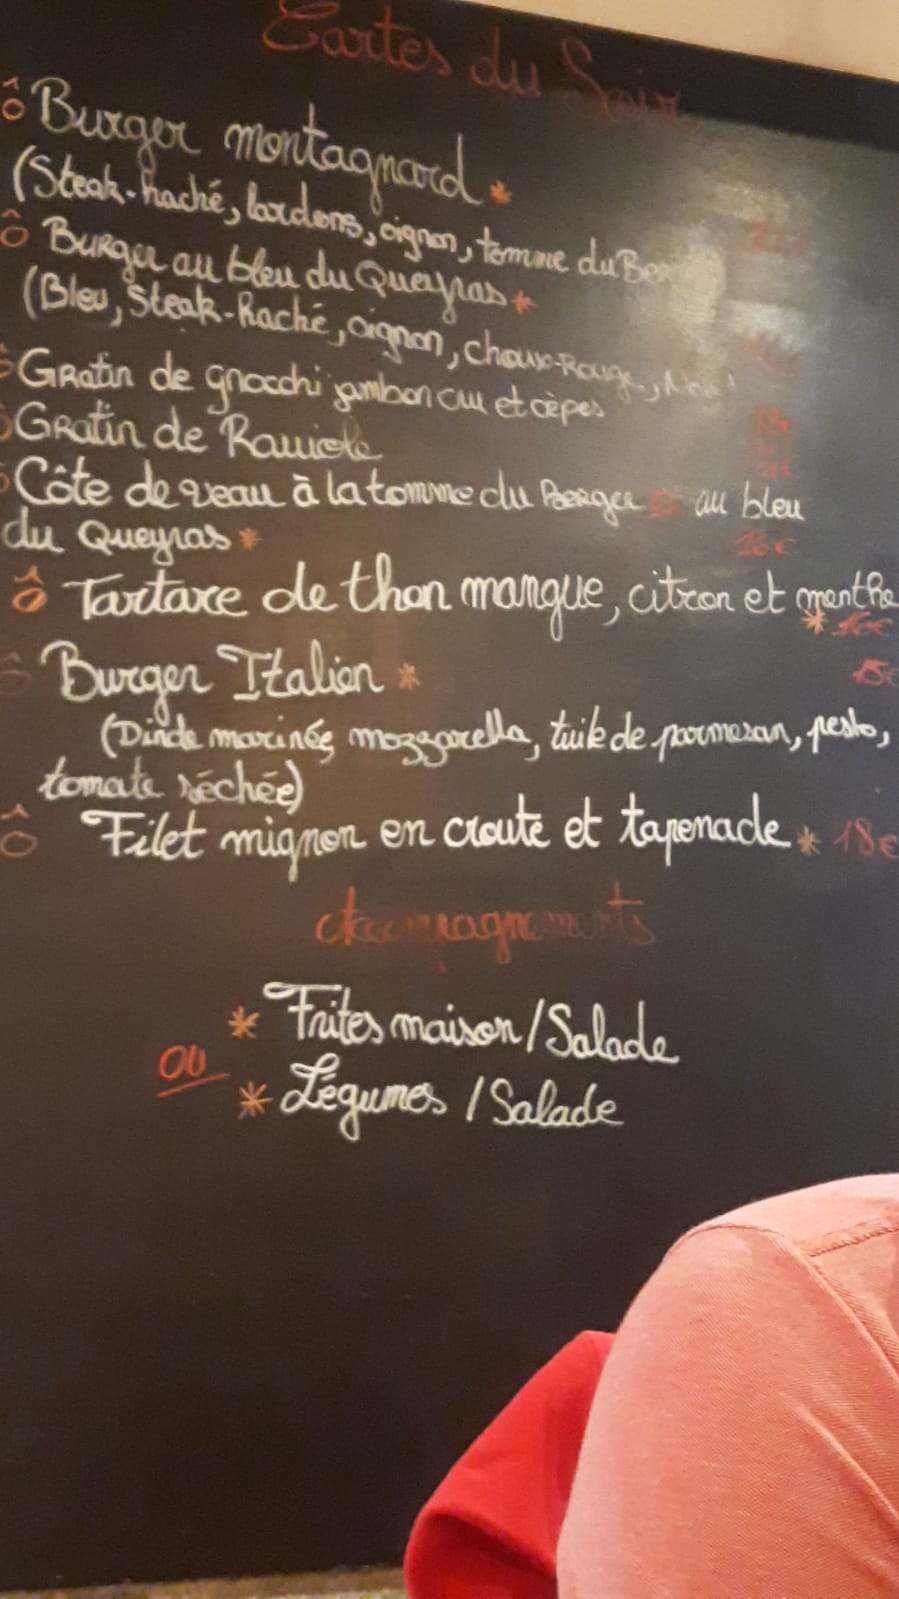 Cartes du Soir
Ô Burger montagnard *
(Steak-haché, lardons, oignon, tomme du
Ô Burger au bleu du Queyras *
(Bleu, Steak-haché, oignon, choux-Rouge,
Ô Gratin de gnocchi jambon cru et cèpes
Ô Gratin de Raviole
Ô Côte de veau à la tomme du Berger au bleu
du Queyras * 16€
Ô Tartare de thon mangue, citron et menthe
* 16€
Ô Burger Italien * 15€
(Dinde marinée, mozzarella, tuile de parmesan, pesto,
tomate séchée)
Ô Filet mignon en croute et tapenade * 18€
Accompagnements
* Frites maison / Salade
OU
* Légumes / Salade